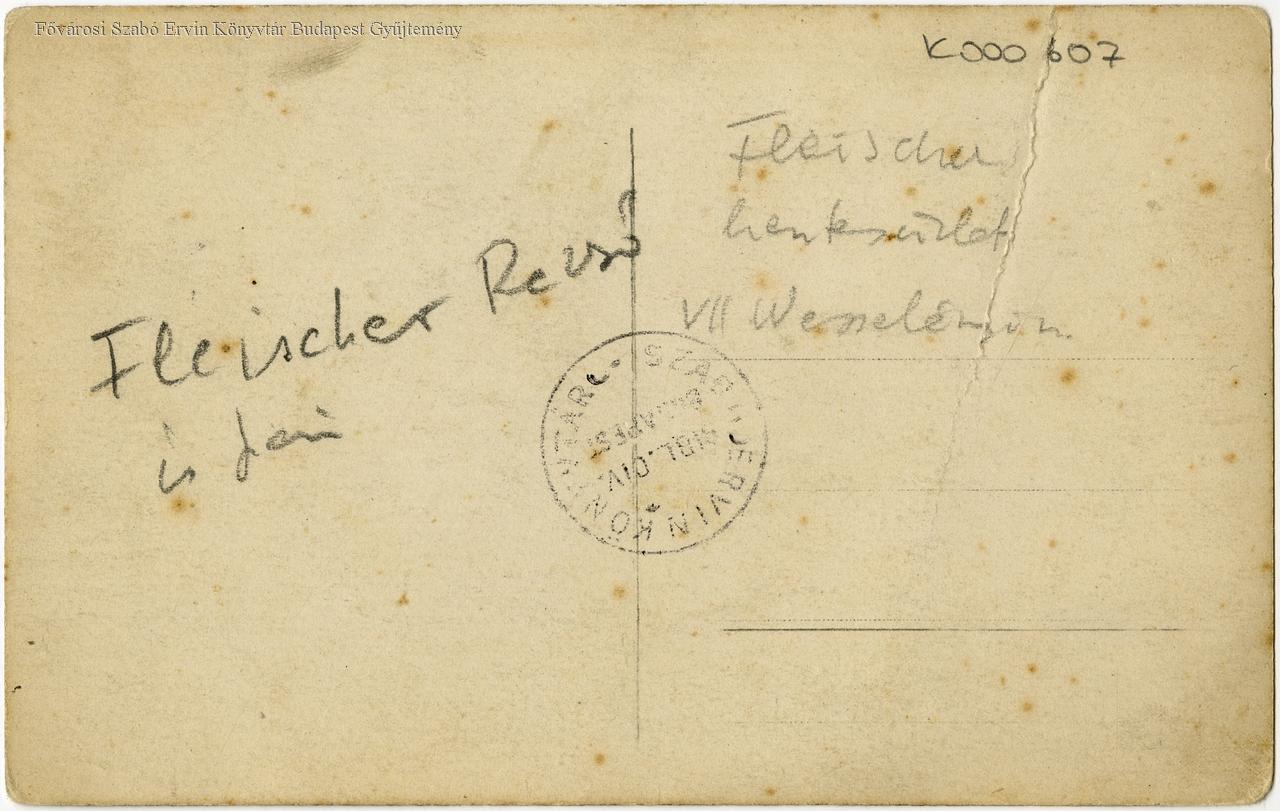 Fővárosi Szabó Ervin Könyvtár Budapest Gyűjtemény
K000 607
Fleischer
hentesüzlet
VII Wesselényi u.
Fleischer Rezső
és fiai
SZABÓ ERVIN KÖNYVTÁR
BIBL. CIV.
BUDAPEST